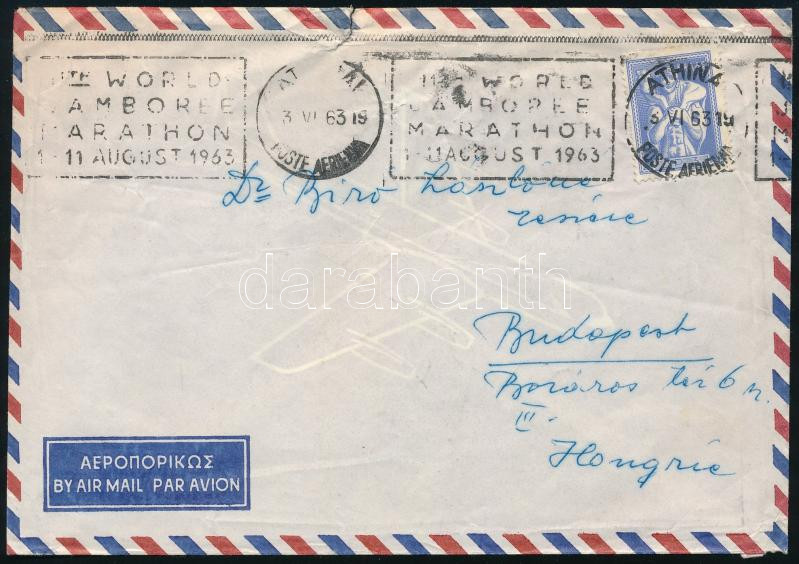 11TH WORLD
JAMBOREE
MARATHON
1-11 AUGUST 1963
3 VI 63 19
POSTE AERIENNE
11TH WORLD
JAMBOREE
MARATHON
1-11 AUGUST 1963
ATHINAI
3 VI 63 19
POSTE AERIENNE
Dr Biró Lászlóné
részére
Budapest
Boráros tér 6
III.
Hongrie
darabanth
ΑΕΡΟΠΟΡΙΚΩΣ
BY AIR MAIL PAR AVION